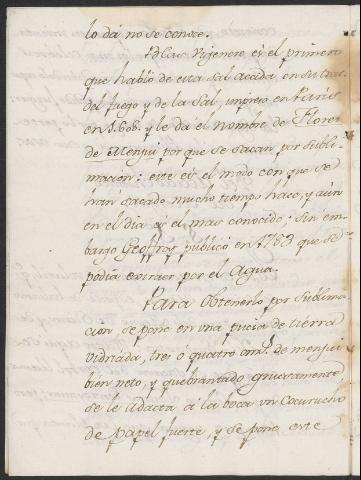 lo dá no se conoce.
Blas Vijenere es el primero
que habló de esta sal acáda en su trat.
del fuego y de la Sal, impreso en Paris
en 1.608. y le da el nombre de Flores
de Menjui por que se sacan por subli-
mación: este es el modo con que se
han sacado mucho tiempo hace, y aún
en el dia es el mas conocido: sin em-
bargo Geoffroy publicó en 1783 que se
podia extraer por el Agua.
Para obtenerlo por sublima-
ción se pone en una pieza de tierra
vidriada, tres ó quatro onz.s de menjui
bien neto, y quebrantado gruesamente
se le adacta á la boca un Cucurucho
de papel fuerte, y se pone este